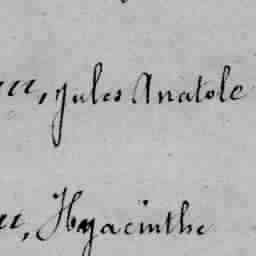 ", Jules Anatole
", Hyacinthe